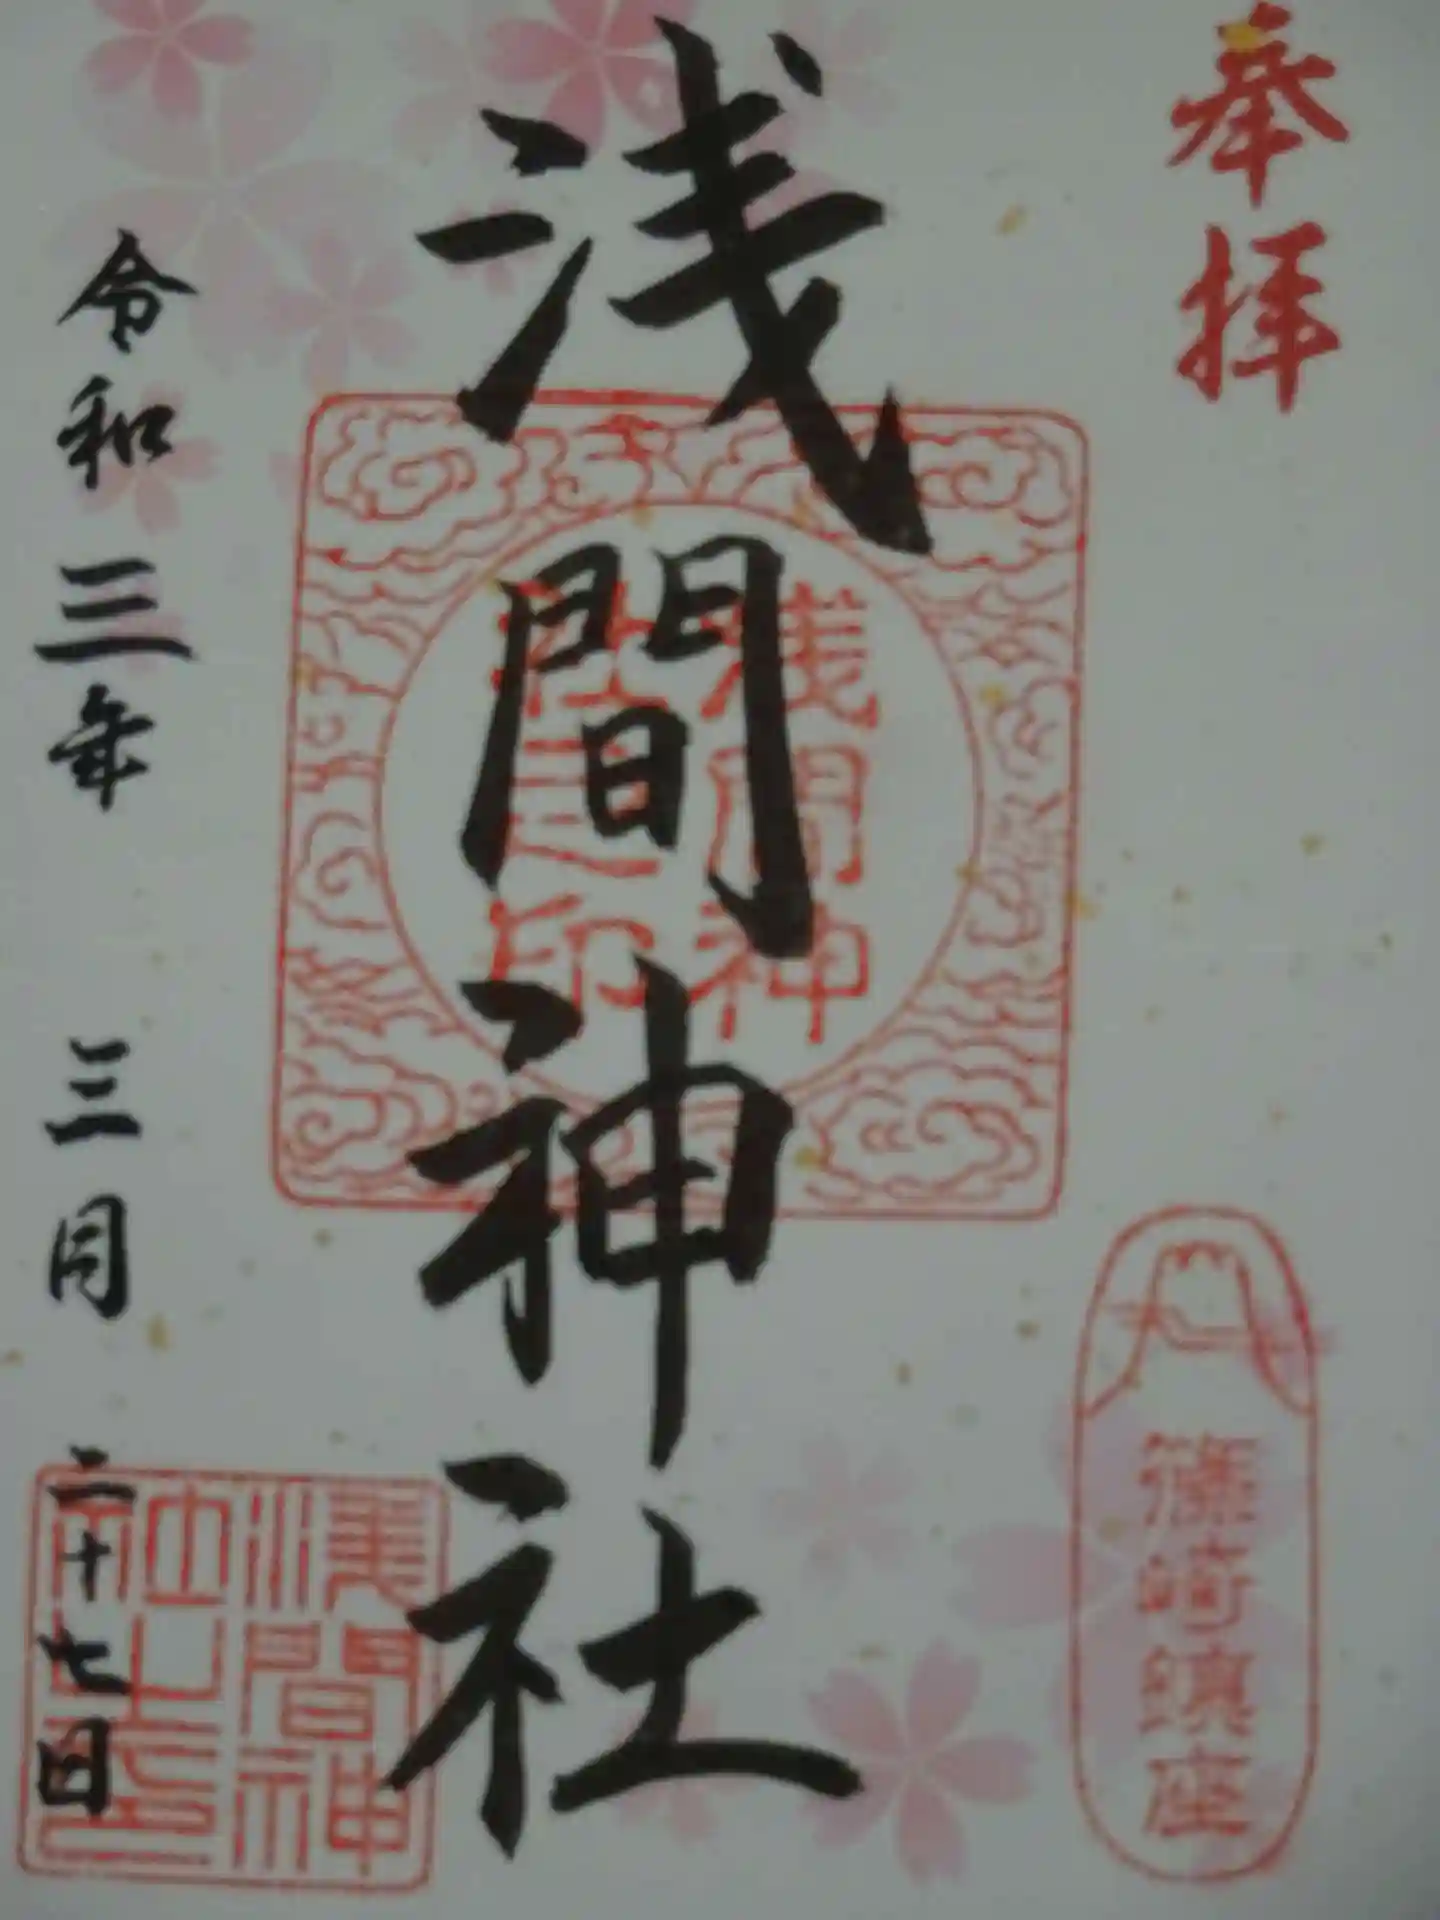 奉拝
篠崎鎮座
浅間神社
浅間神
社之印
令和三年 三月 二十七日
浅間神
社之印